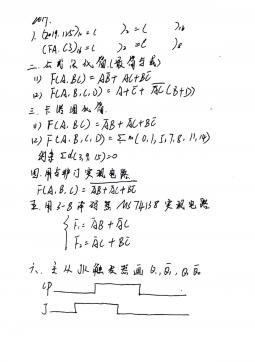 2017.
1. (2019.125)₁₀ = ( )₂ = ( )₁₆
(FA.C3)₁₆ = ( )₂ = ( )₈
(1) F(A.B.C) = AB + AC + BC̅
(2) F(A.B.C.D) = A + C̅ + A̅C̅(B+D)
三. 卡诺图化简
(1) F(A.B.C) = A̅B + AC + BC̅
(2) F(A.B.C.D) = Σm(0,1,5,7,8,11,14)
约束 Σd(3,9,15)=0
四. 用与非门实现电路
F(A.B.C) = AB + AC + BC
五. 用3-8 74138 实现电路
F₁ = A̅B + A̅C
F₂ = A̅C + BC̅
六. 主从JK触发器画 Q₁, Q̅₁, Q₂ Q̅₂
CP
J